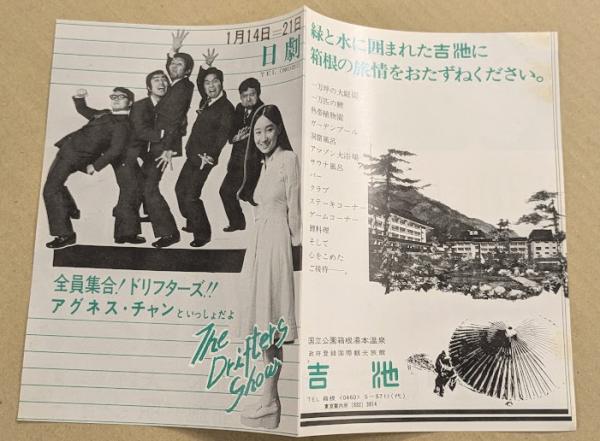 1月14日=21日
日劇
全員集合!ドリフターズ!!
アグネス・チャンといっしょだよ
The
Drifters
Show
緑と水に囲まれた吉池に
箱根の旅情をおたずねください。
一万坪の大庭園
一万匹の鯉
熱帯植物園
ガーデンプール
洞窟風呂
アマゾン大浴場
サウナ風呂
バー
クラブ
ステーキコーナー
ゲームコーナー
鯉料理
そして
心をこめた
ご接待――。
国立公園箱根湯本温泉
政府登録国際観光旅館
吉池
TEL 箱根 (0460) 5-5711(代)